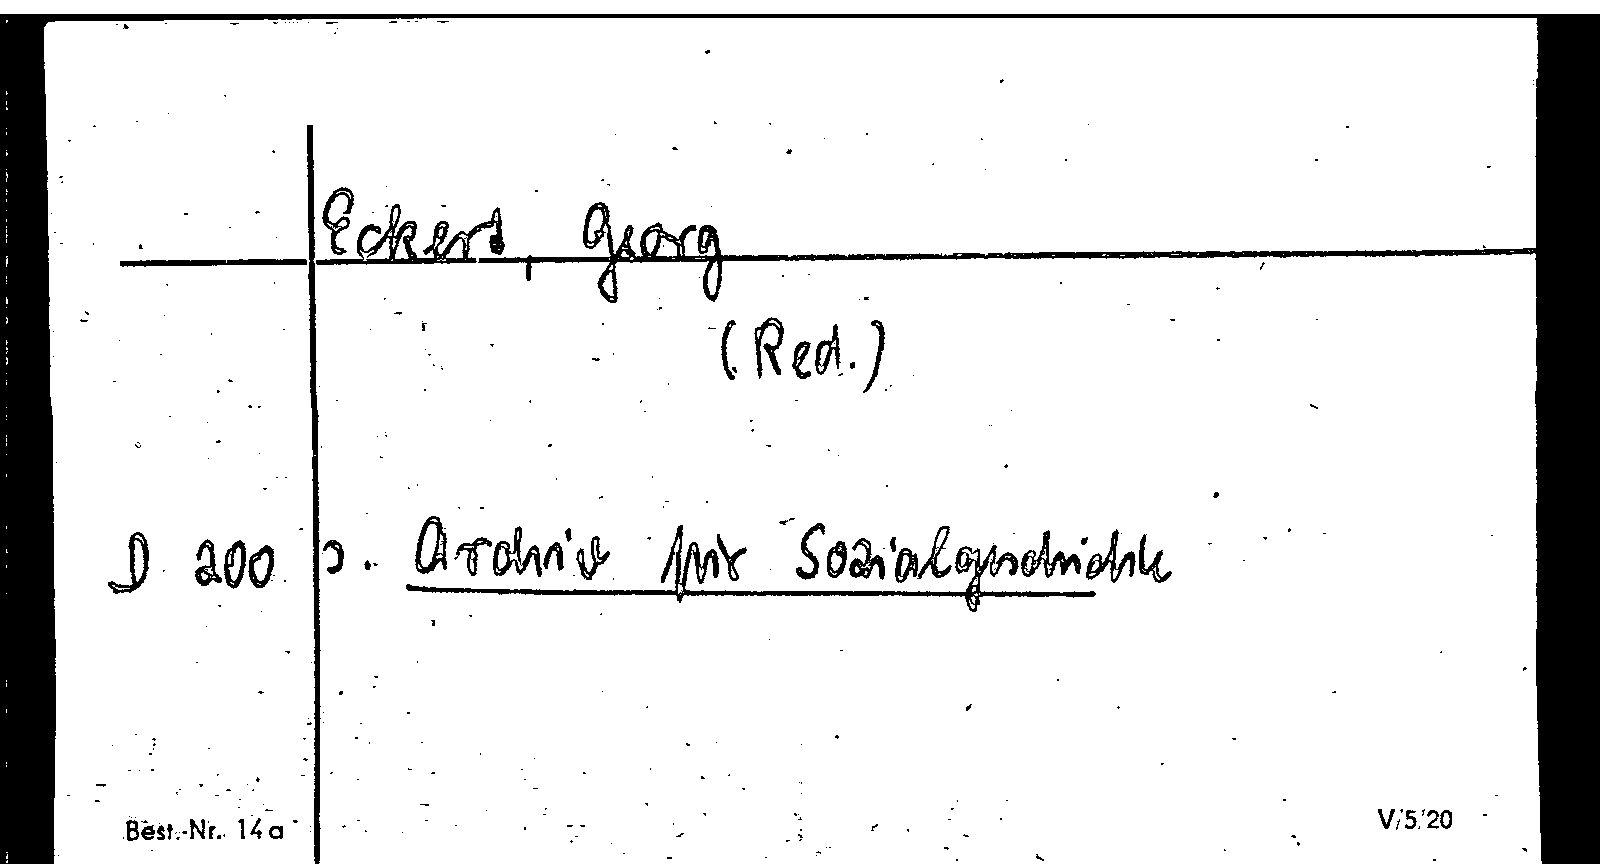 Eckert, Georg
(Red.)
D 200 s. Archiv für Sozialgeschichte
Best.-Nr. 14a V/5/20